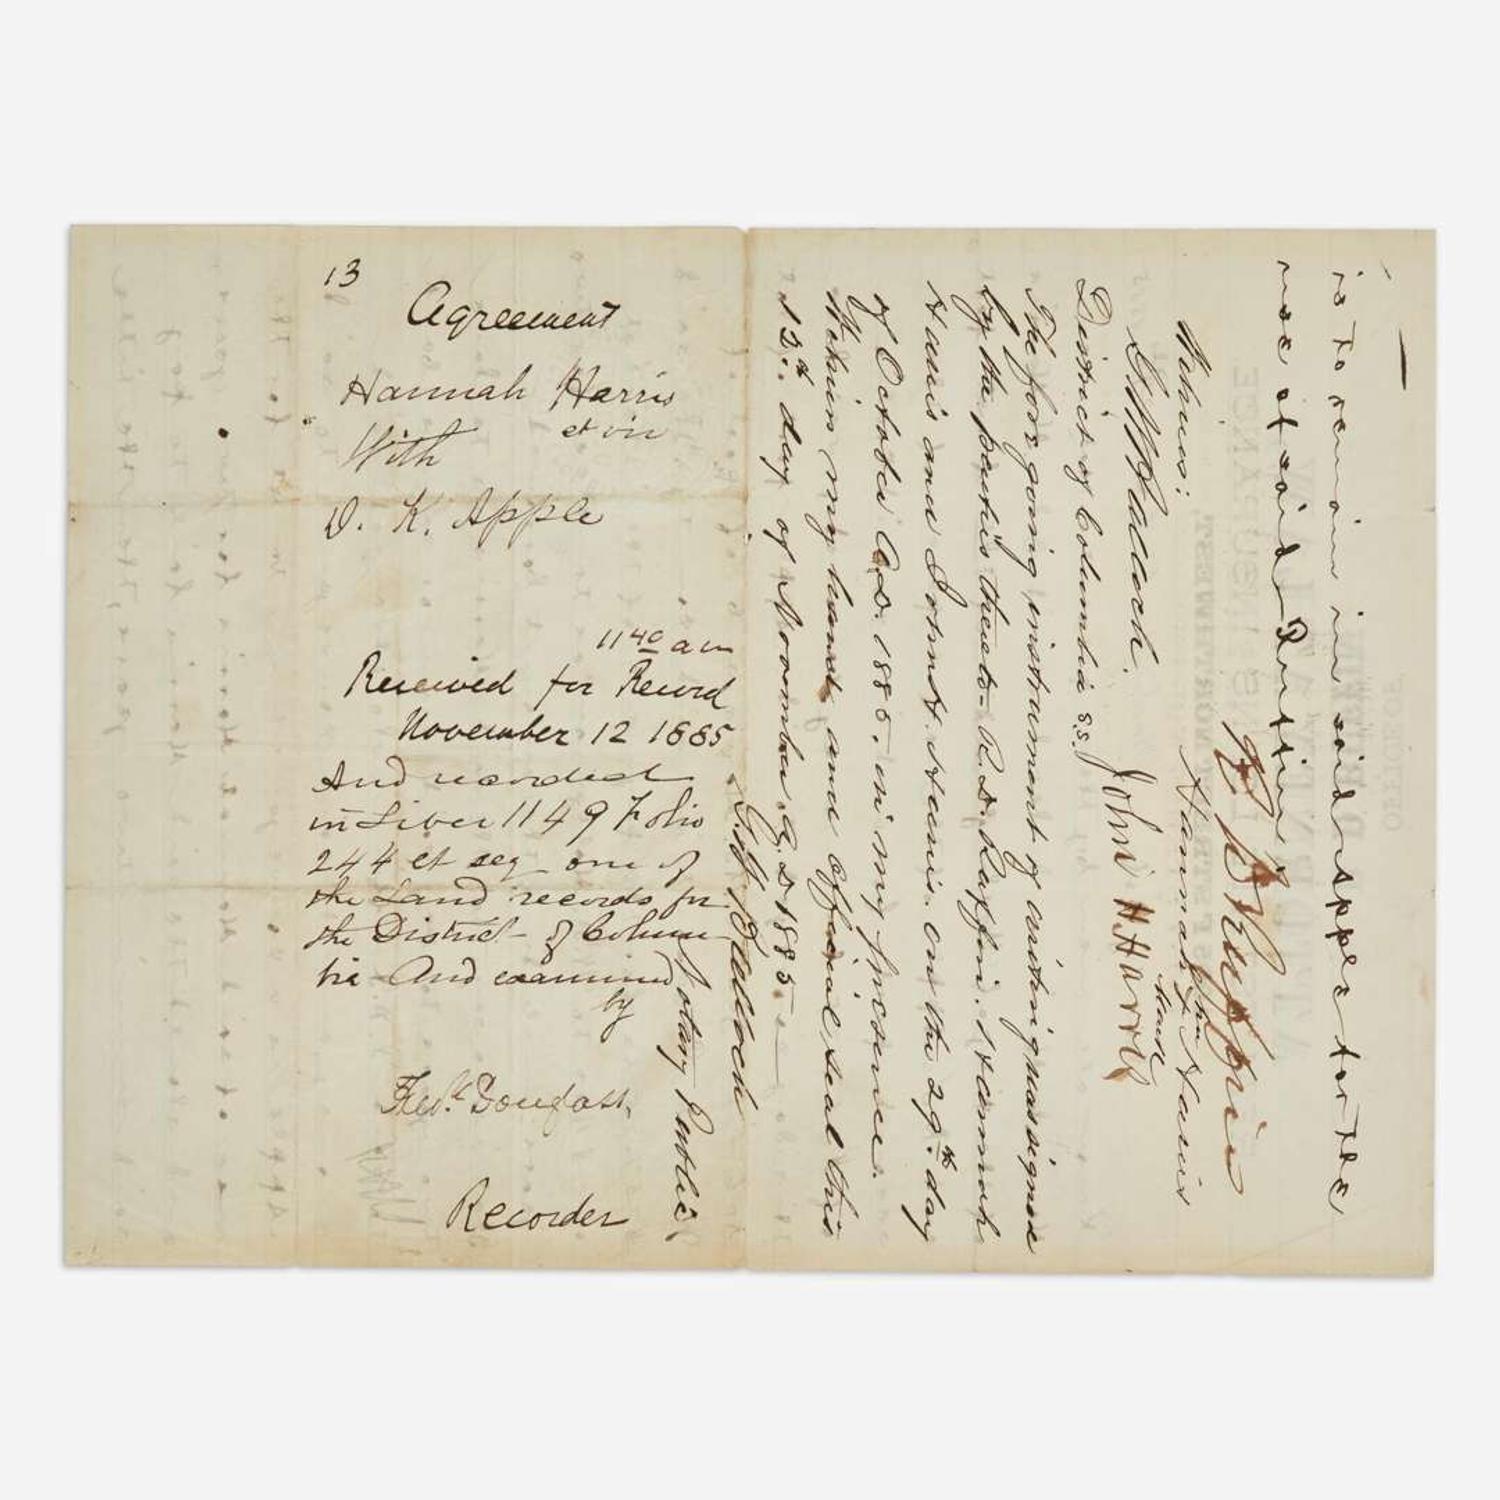 13
Agreement
Hannah Harris
et vir
With
D. K. Apple
11 40 a m
Received for Record
November 12 1885
And recorded
in Liber 1149 Folio
244 et seq one of
the Land records for
the District of Colum
bia And examined
by
Fredk Douglass,
Recorder
is to remain in said Apple for the
use of said Ruffin.
Witness:
Hannah her X mark Harris
John H Harris
District of Columbia s.s.
The foregoing instrument of writing was signed
by the parties thereto R. D. Ruffin. Hannah
Harris and John H Harris on the 29th day
of October A.D. 1885. in my presence.
Witness my hand and official seal this
12th day of November A.D 1885
Notary Public